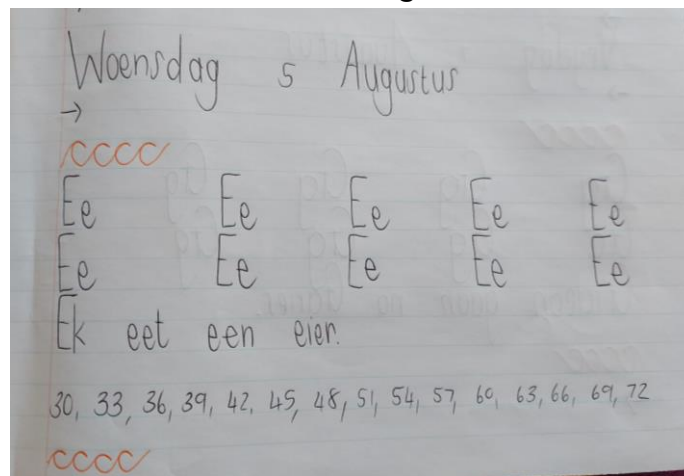 Woensdag 5 Augustus
→
cccc
Ee Ee Ee Ee Ee
Ee Ee Ee Ee Ee
Ek eet een eier.
30, 33, 36, 39, 42, 45, 48, 51, 54, 57, 60, 63, 66, 69, 72
cccc